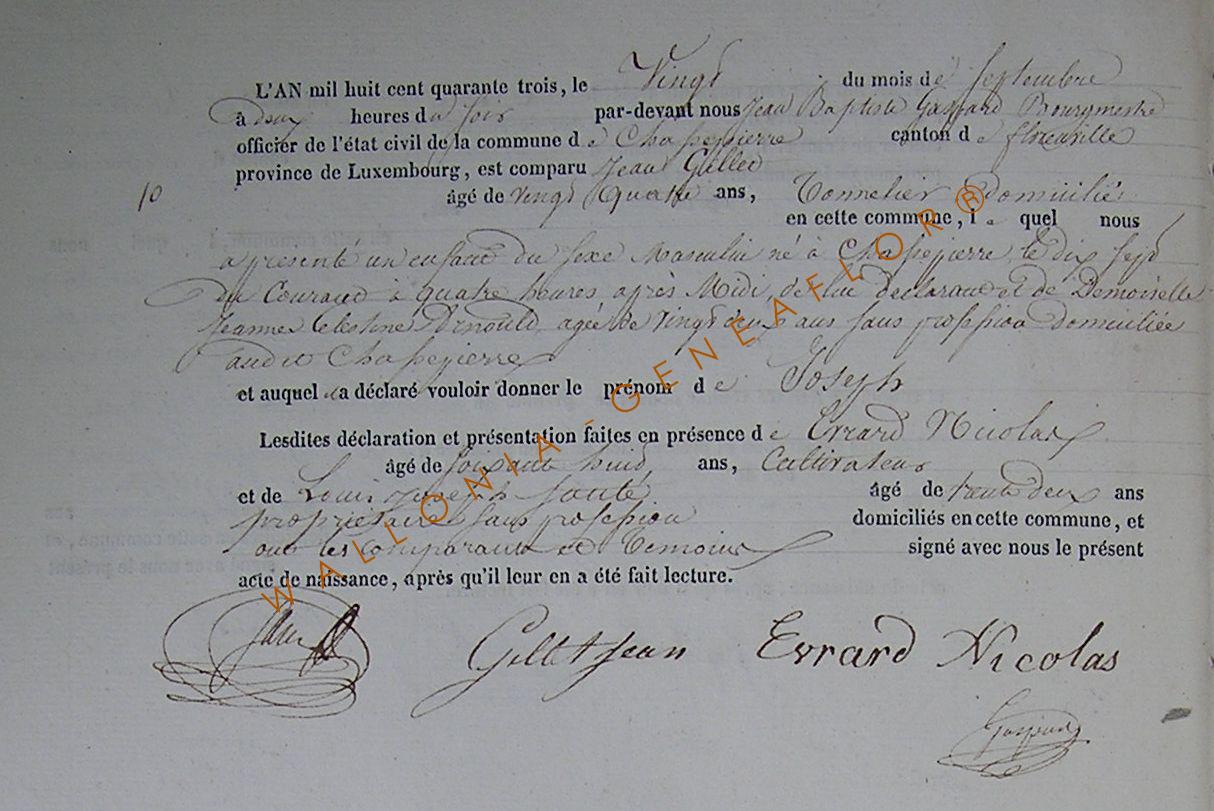 L'AN mil huit cent quarante trois, le Vingt du mois de Septembre
à deux heures du soir par-devant nous Jean Baptiste Gaspard Bourgmestre
officier de l'état civil de la commune de Chassepierre canton de florenville
province de Luxembourg, est comparu Jean Gillet
10 âgé de vingt quatre ans, Tonnelier domicilié
en cette commune, le quel nous
a presenté un enfant du sexe Masculin né à Chassepierre le dix sept
du Courant à quatre heures après Midi, de lui declarant et de Demoiselle
Jeanne Celestine Arnould agée de vingt deux ans sans profession domiciliée
audit Chassepierre
et auquel il a déclaré vouloir donner le prénom de Joseph
Lesdites déclaration et présentation faites en présence de Evrard Nicolas
âgé de soixante huit ans, Cultivateur
et de Louis Joseph âgé de trente deux ans
propriétaire sans profession domiciliés en cette commune, et
ont les comparant et Temoins signé avec nous le présent
acte de naissance, après qu'il leur en a été fait lecture.
Gillet Jean Evrard Nicolas
Gaspard
WALLONIA-GENEAFLOR®